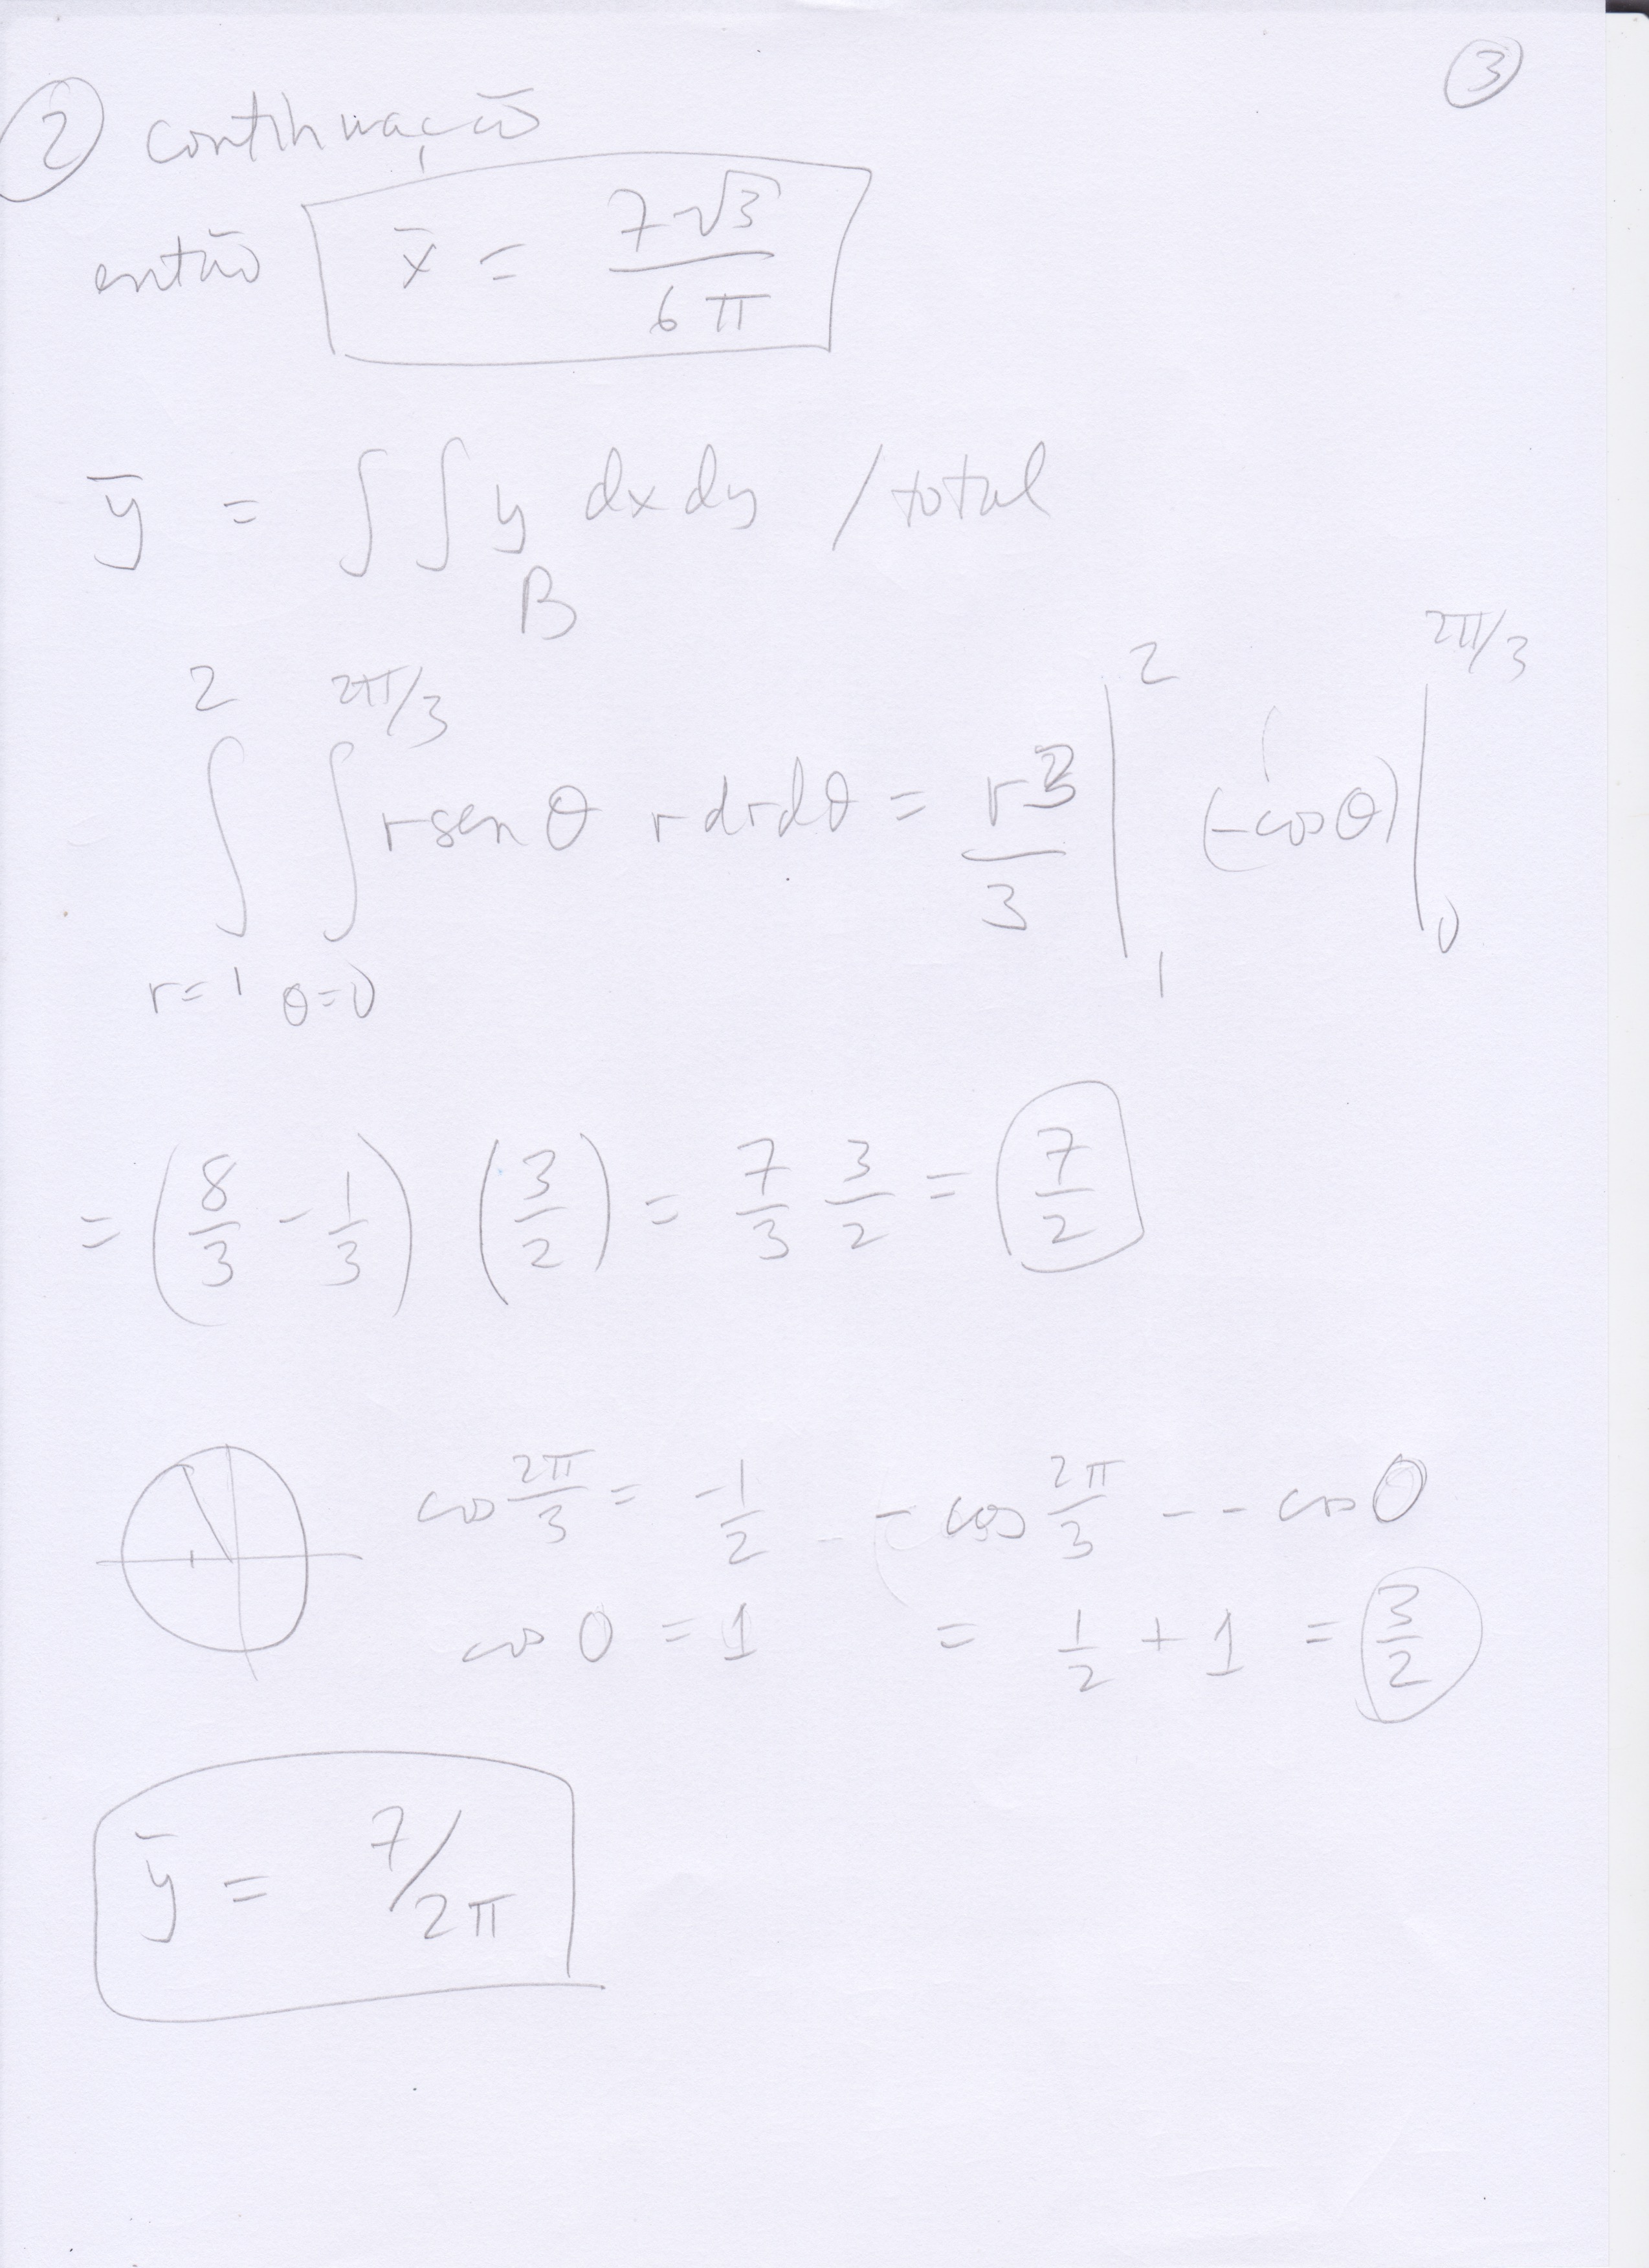 ③
② continuação
então x̄ = 7√3 / 6π
ȳ = ∫∫_B y dx dy / total
∫_{r=1}^{2} ∫_{θ=0}^{2π/3} r sen θ r dr dθ = r³/3 |_1^2 (-cos θ) |_0^{2π/3}
= (8/3 - 1/3) (3/2) = 7/3 3/2 = 7/2
cos 2π/3 = -1/2 - cos 2π/3 - - cos 0
cos 0 = 1 = 1/2 + 1 = 3/2
ȳ = 7/2π